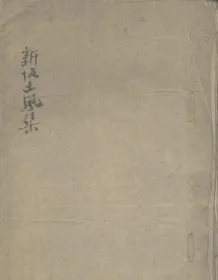 新仮土風集